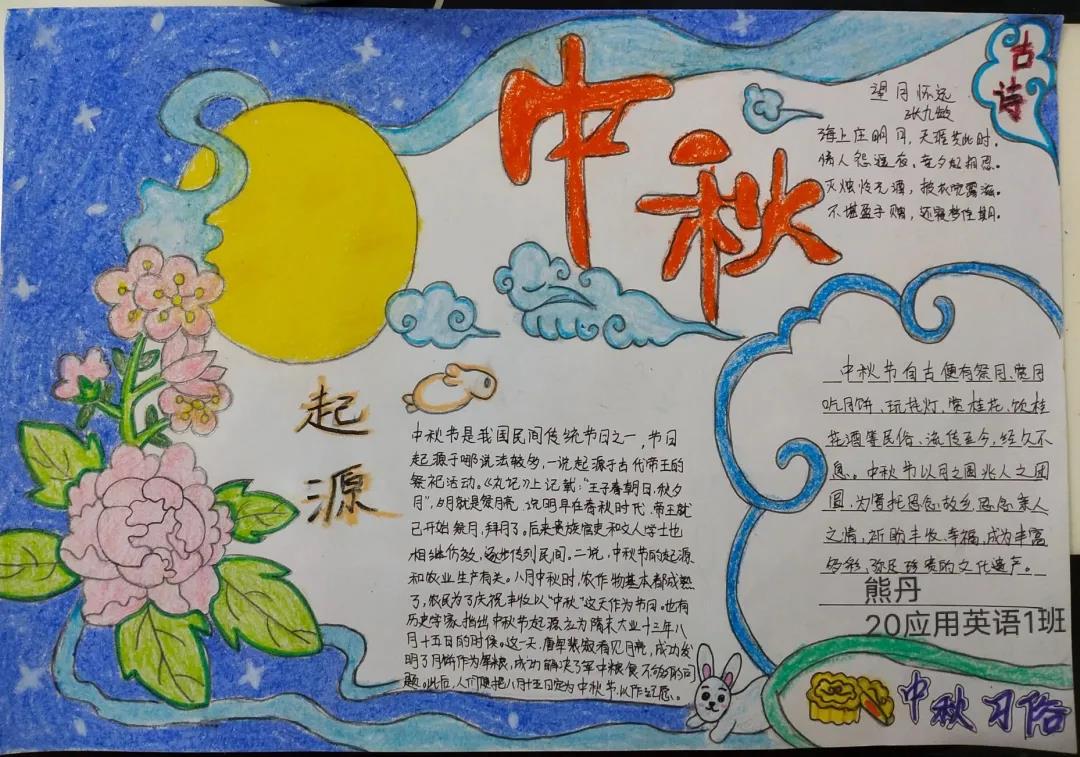 中秋
古诗
望月怀远
张九龄
海上庄明月，天涯共此时。
情人怨遥夜，竟夕起相思。
灭烛怜光满，披衣觉露滋。
不堪盈手赠，还寝梦佳期。
起源
中秋节是我国民间传统节日之一，节日
起源于哪说法较多，一说起源于古代帝王的
祭祀活动。《礼记》上记载："王子春朝日，秋夕
月"，夕月就是祭月亮，说明早在春秋时代，帝王就
已开始祭月、拜月了。后来贵族官吏和文人学士也
相继仿效，逐步传到民间。二说，中秋节的起源
和农业生产有关。八月中秋时，农作物基本都成熟
了，农民为了庆祝丰收以"中秋"这天作为节日。也有
历史学家指出中秋节起源应为隋末大业十三年八
月十五日的时候。这一天，唐军裴寂看见月亮，成功发
明了月饼作为军粮，成功解决了军中粮食不够的问
题。此后，人们便把八月十五日定为中秋节，以作纪念。
中秋节自古便有祭月、赏月
吃月饼、玩花灯、赏桂花、饮桂
花酒等民俗，流传至今，经久不
息。中秋节以月之圆兆人之团
圆，为寄托思念故乡，思念亲人
之情，祈盼丰收、幸福，成为丰富
多彩、弥足珍贵的文化遗产。
熊丹
20应用英语1班
中秋习俗